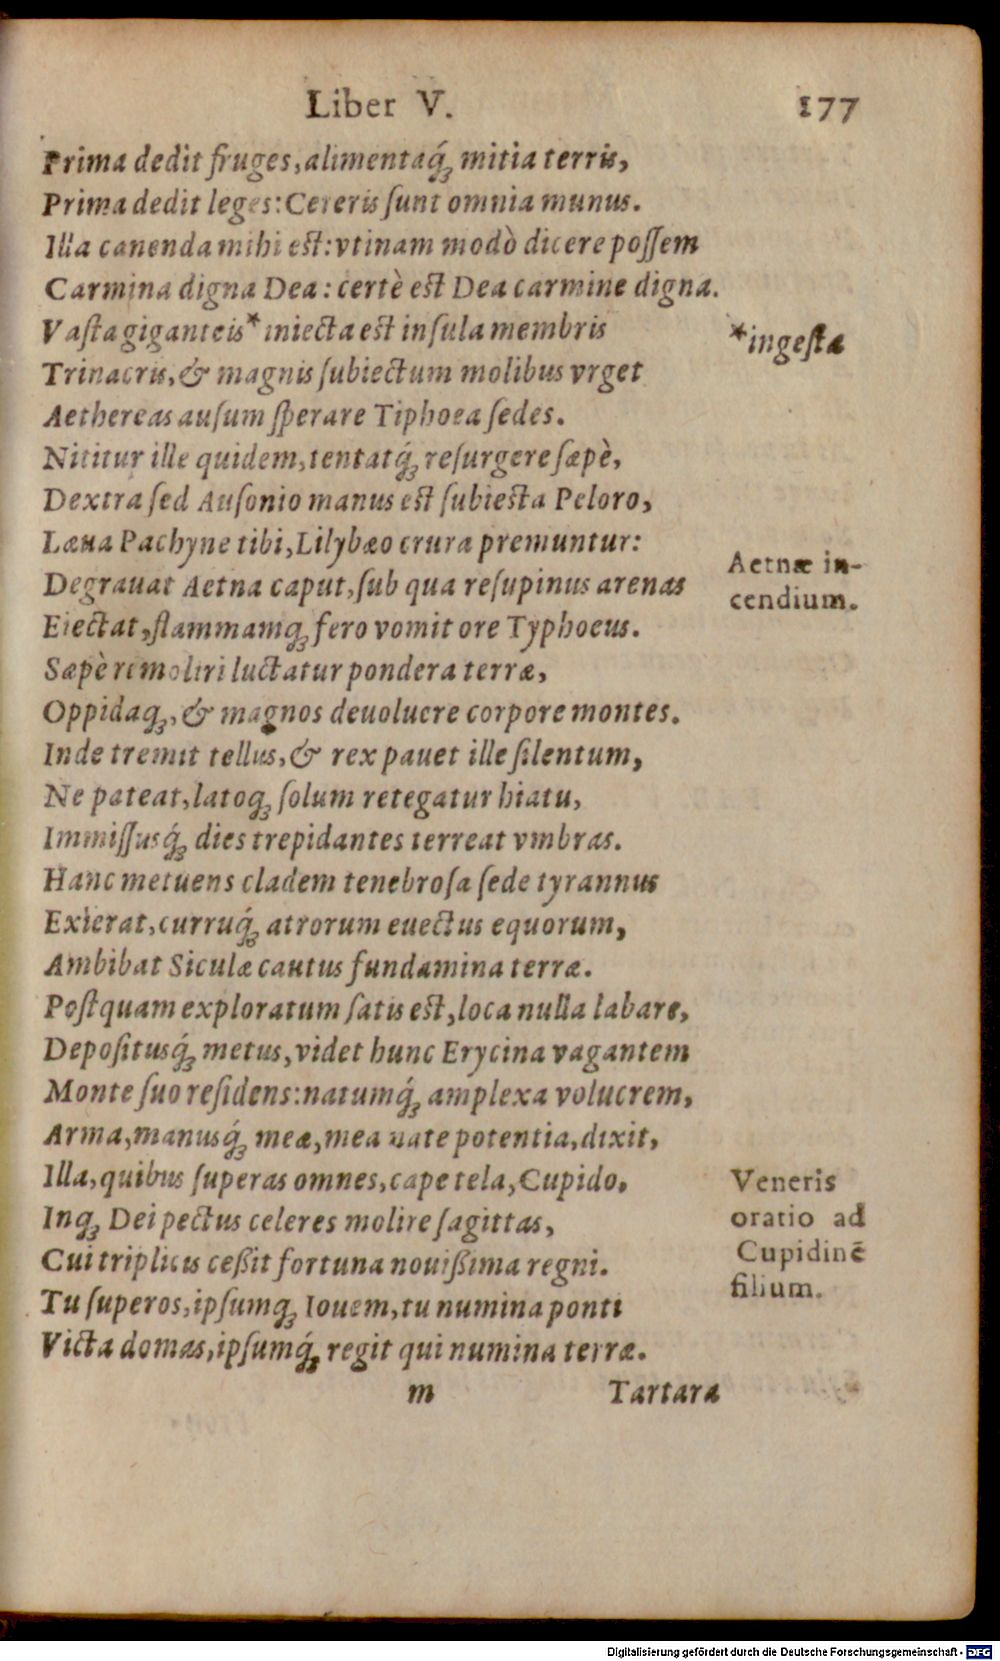 Liber V. 177
Prima dedit fruges, alimentaq́ꝫ mitia terris,
Prima dedit leges: Cereris ſunt omnia munus.
Illa canenda mihi est: vtinam modò dicere poſſem
Carmina digna Dea: certè est Dea carmine digna.
Vaſta giganteis* iniecta est inſula membris
*ingeſta
Trinacris, & magnis ſubiectum molibus vrget
Aethereas auſum ſperare Tiphoea ſedes.
Nititur ille quidem, tentatq́ꝫ reſurgere ſæpè,
Dextra ſed Auſonio manus est ſubiecta Peloro,
Læua Pachyne tibi, Lilybæo crura premuntur:
Degrauat Aetna caput, ſub qua reſupinus arenas
Aetnæ in-
cendium.
Eiectat, flammamqꝫ fero vomit ore Typhoeus.
Sæpè remoliri luctatur pondera terræ,
Oppidaqꝫ, & magnos deuoluere corpore montes.
Inde tremit tellus, & rex pauet ille ſilentum,
Ne pateat, latoqꝫ ſolum retegatur hiatu,
Immiſſusq́ꝫ dies trepidantes terreat vmbras.
Hanc metuens cladem tenebroſa ſede tyrannus
Exierat, curruq́ꝫ atrorum euectus equorum,
Ambibat Siculæ cautus fundamina terræ.
Poſtquam exploratum ſatis est, loca nulla labare,
Depoſitusq́ꝫ metus, videt hunc Erycina vagantem
Monte ſuo reſidens: natumq́ꝫ amplexa volucrem,
Arma, manusq́ꝫ meæ, mea nate potentia, dixit,
Illa, quibus ſuperas omnes, cape tela, Cupido,
Inqꝫ Dei pectus celeres molire ſagittas,
Cui triplicis ceßit fortuna nouißima regni.
Veneris
oratio ad
Cupidinē
filium.
Tu ſuperos, ipſumqꝫ Iouem, tu numina ponti
Victa domas, ipſumq́ꝫ regit qui numina terræ.
m Tartara
Digitalisierung gefördert durch die Deutsche Forschungsgemeinschaft - DFG